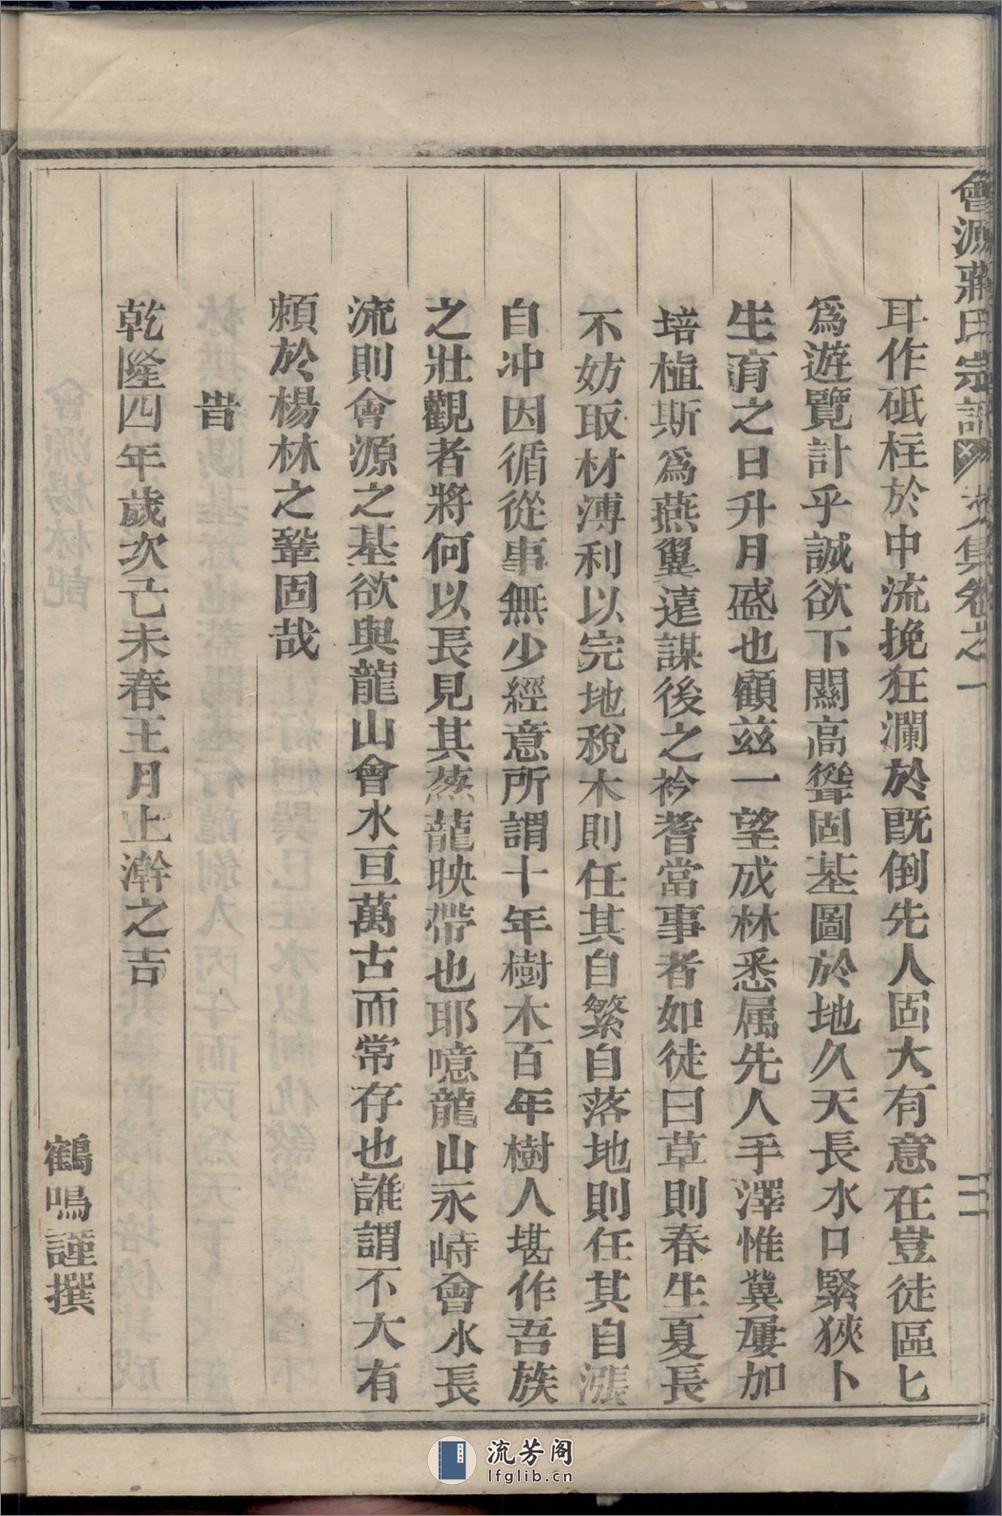 會源蔣氏宗譜 文集卷之一 三
耳作砥柱於中流挽狂瀾於既倒先人固大有意在豈徒區匕
爲遊覽計乎誠欲下關高聳固基圖於地久天長水口緊狹卜
生育之日升月盛也顧兹一望成林悉属先人手澤惟冀屢加
培植斯爲燕翼遠謀後之衿耆當事者如徒曰草則春生夏長
不妨取材溥利以完地稅木則任其自繁自落地則任其自漲
自冲因循從事無少經意所謂十年樹木百年樹人堪作吾族
之壯觀者將何以長見其蒸蘢映帶也耶噫龍山永峙會水長
流則會源之基欲與龍山會水亘萬古而常存也誰謂不大有
頼於楊林之鞏固哉
旹
乾隆四年歲次己未春王月上澣之吉
鶴鳴謹撰
流芳阁
lfglib.cn